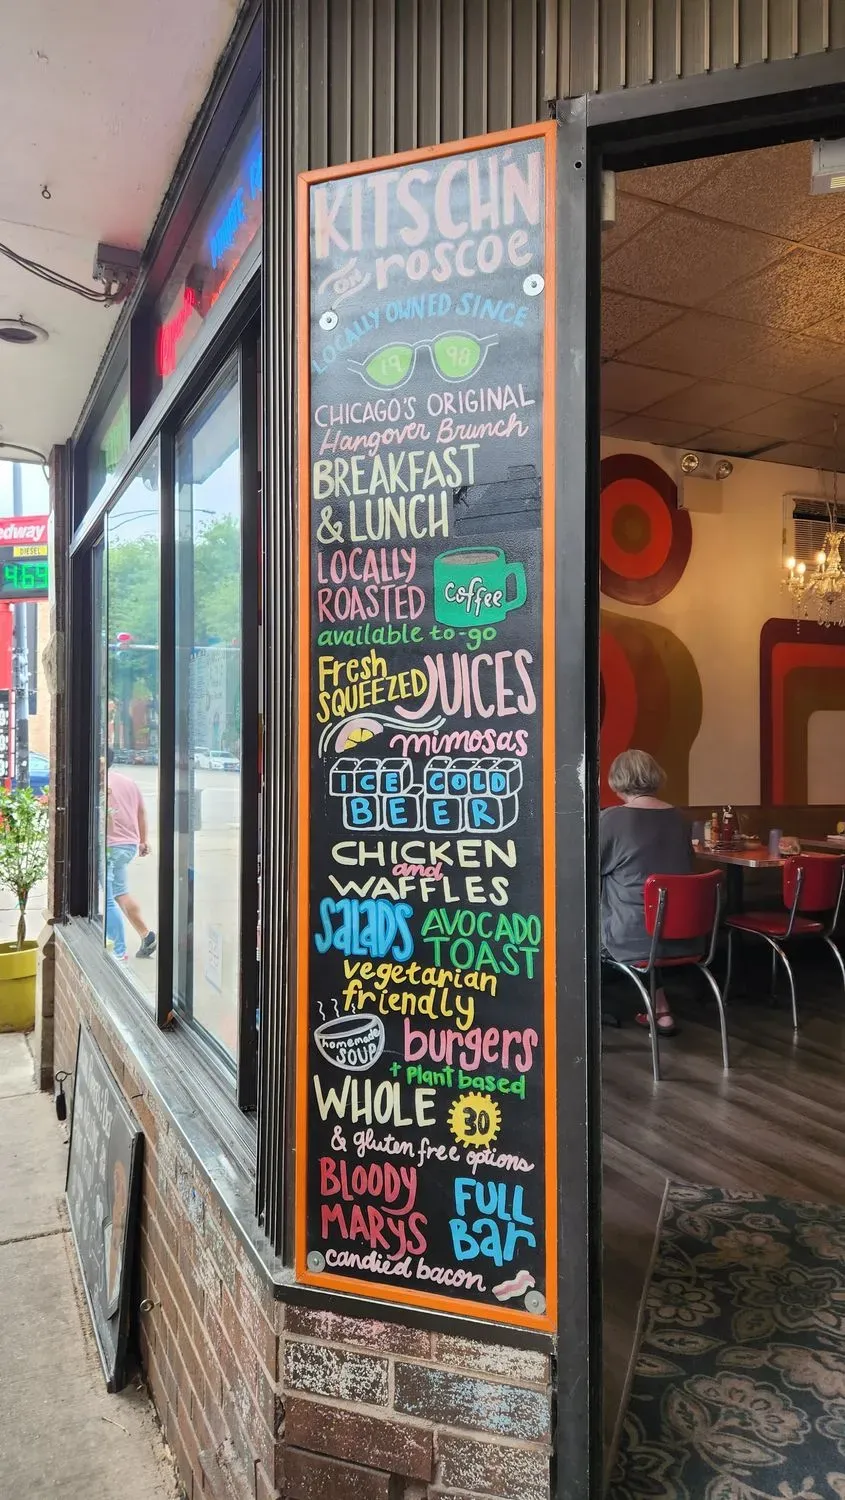 KITSCH'N
on roscoe
LOCALLY OWNED SINCE
19 98
CHICAGO'S ORIGINAL
Hangover Brunch
BREAKFAST
& LUNCH
LOCALLY
ROASTED
coffee
available to-go
Fresh
SQUEEZED
JUICES
mimosas
ICE COLD
BEER
CHICKEN
and
WAFFLES
SALADS
AVOCADO
TOAST
vegetarian
friendly
homemade
SOUP
burgers
+ plant based
WHOLE 30
& gluten free options
BLOODY
MARYS
FULL
Bar
candied bacon
edway
DIESEL
4.69